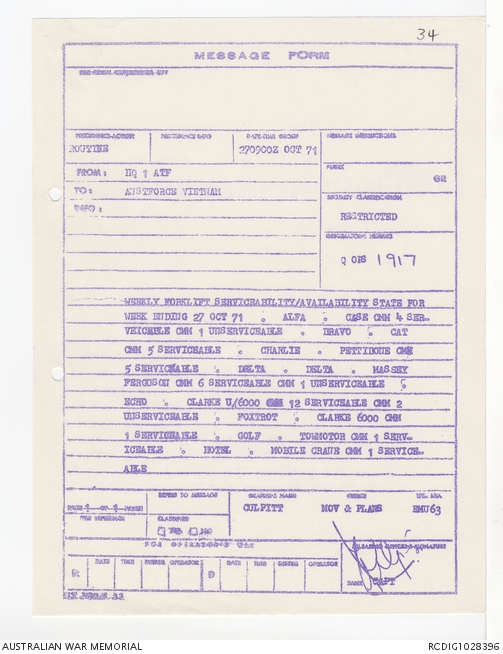 34
MESSAGE FORM
PRECEDENCE-ACTION
DATE-TIME GROUP
MESSAGE INSTRUCTIONS
ROUTINE
270900Z OCT 71
FROM: HQ 1 ATF
PREFIX
GR
TO: AUSTFORCE VIETNAM
SECURITY CLASSIFICATION
INFO:
RESTRICTED
ORIGINATORS NUMBER
Q OPS 1917
WEEKLY FORKLIFT SERVICEABILITY/AVAILABILITY STATE FOR
WEEK ENDING 27 OCT 71 . ALFA . CASE CMM 4 SER-
VEICABLE CMM 1 UNSERVICEABLE . BRAVO . CAT
CMM 5 SERVICEABLE . CHARLIE . PETTIBONE CMM
5 SERVICEABLE . DELTA . DELTA . MASSEY
FERGUSON CMM 6 SERVICEABLE CMM 1 UNSERVICEABLE .
ECHO . CLARKE U/6000 CMM 12 SERVICEABLE CMM 2
UNSERVICEABLE . FOXTROT . CLARKE 6000 CMM
1 SERVICEABLE . GOLF . TOWMOTOR CMM 1 SERV-
ICEABLE . HOTEL . MOBILE CRANE CMM 1 SERVICE-
ABLE
PAGE 1 OF 1 PAGES
REFERS TO MESSAGE
DRAFTERS NAME
OFFICE
TEL NBR
CULPITT
MOV & PLANS
EMU63
FILE REFERENCE
CLASSIFIED
YES NO
FOR OPERATORS USE
RELEASING OFFICERS SIGNATURE
R DATE TIME SYSTEM OPERATOR D DATE TIME SYSTEM OPERATOR
RANK CAPT
AUSTRALIAN WAR MEMORIAL
RCDIG1028396